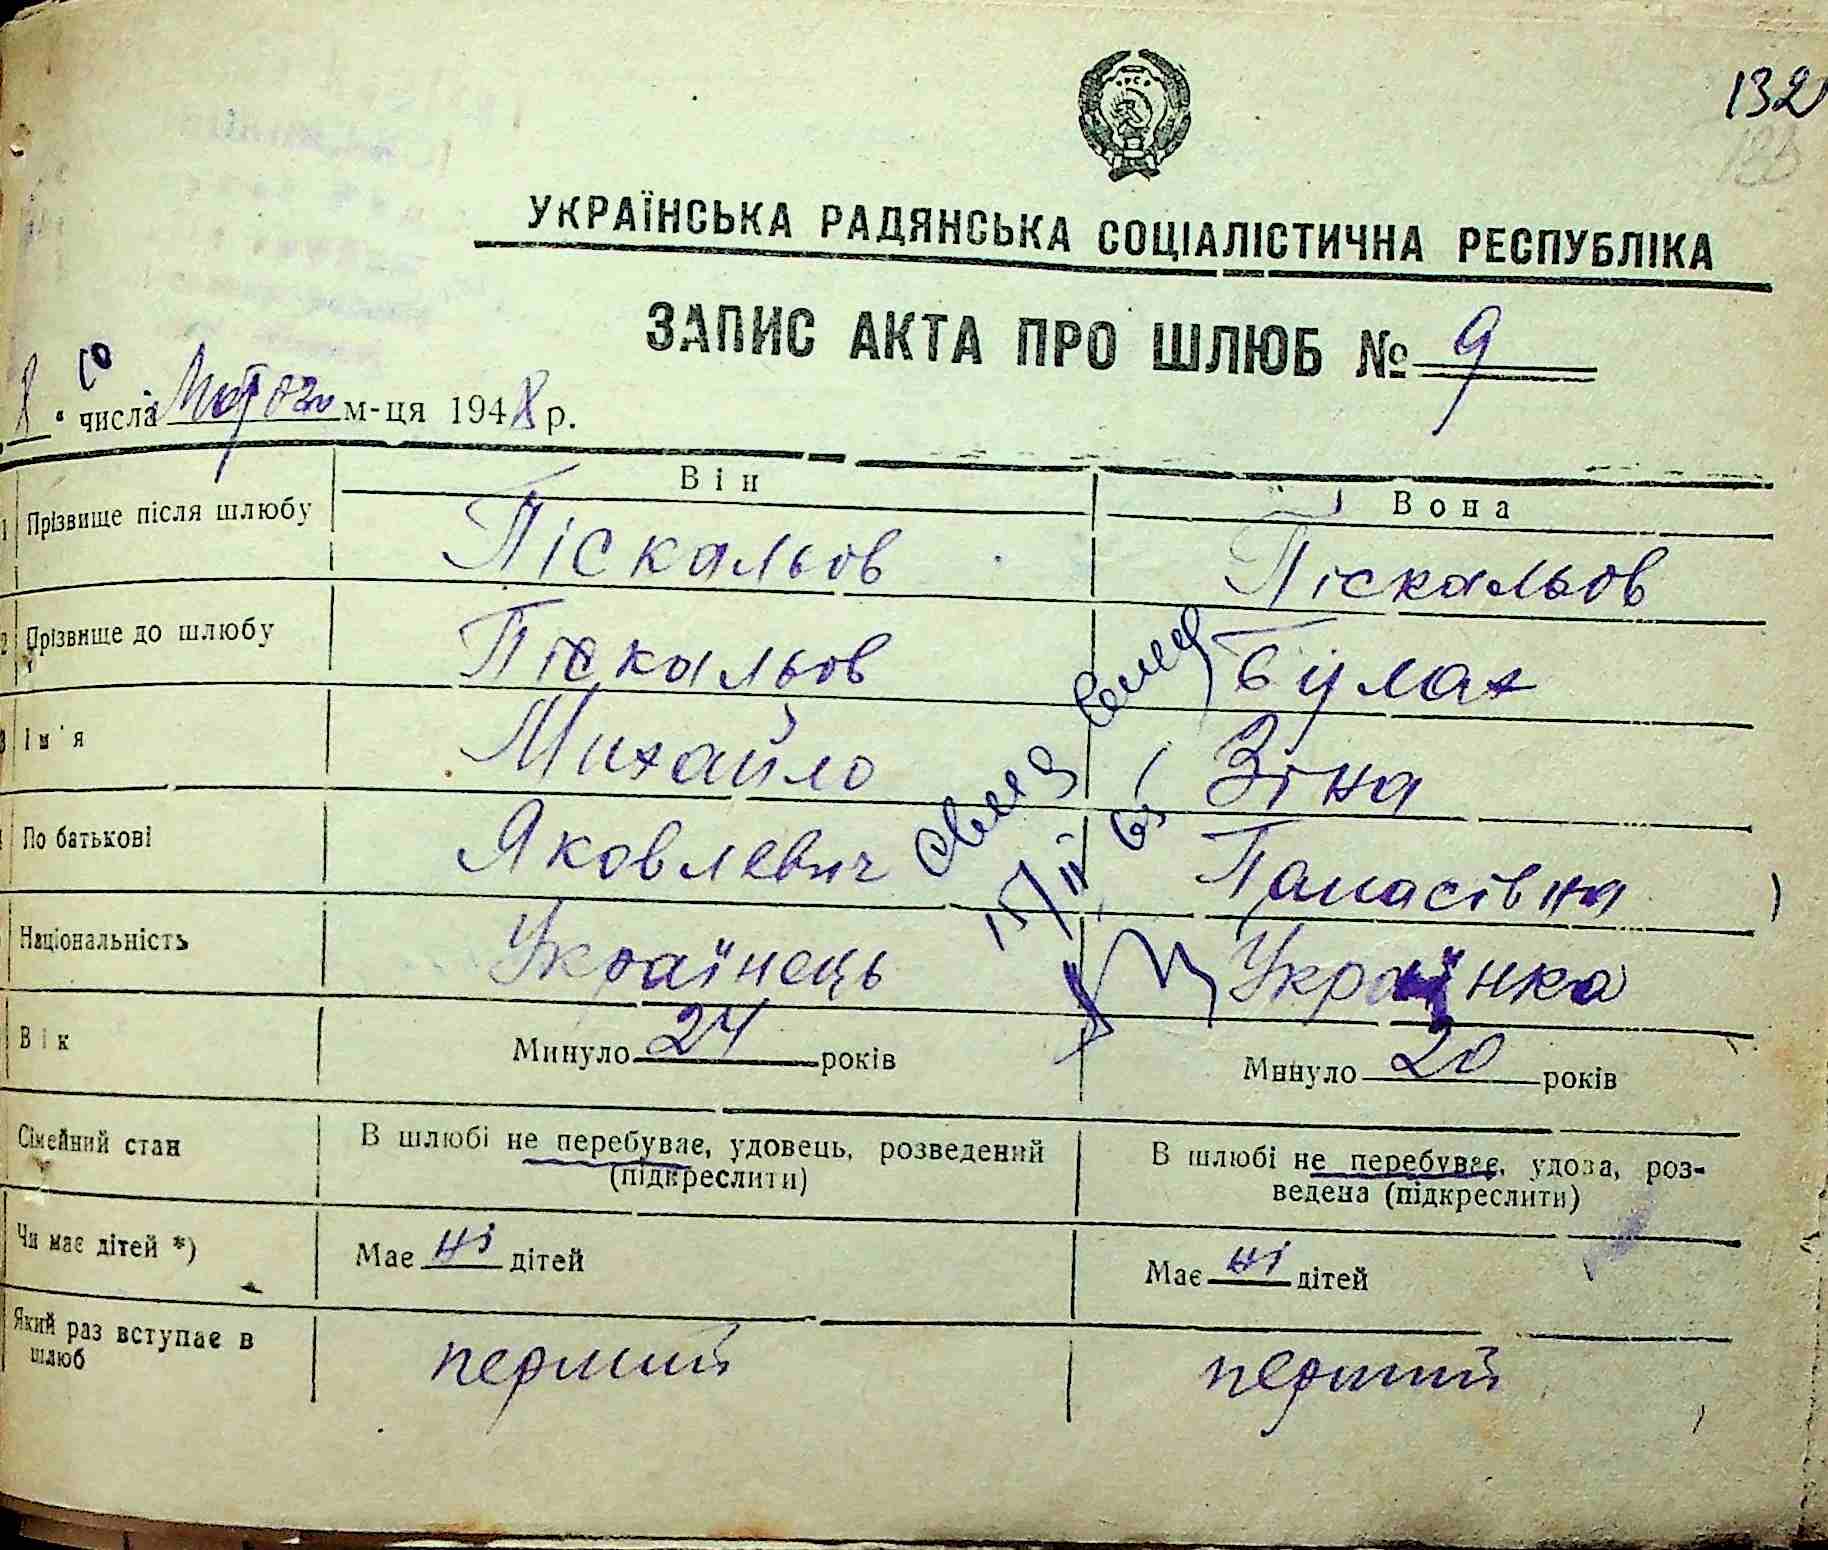 132
УКРАЇНСЬКА РАДЯНСЬКА СОЦІАЛІСТИЧНА РЕСПУБЛІКА
ЗАПИС АКТА ПРО ШЛЮБ № 9
8 го числа м-ця 1948 р.
Він Вона
1 Прізвище після шлюбу Піскальов Піскальов
2 Прізвище до шлюбу Піскальов Булах
3 Ім'я Михайло Зіна
По батькові Яковлевич Панасівна
Національність Українець Українка
Вік Минуло 24 років Минуло 20 років
Сімейний стан В шлюбі не перебуває, удовець, розведений (підкреслити) В шлюбі не перебуває, удова, розведена (підкреслити)
Чи має дітей *) Має ні дітей Має ні дітей
Який раз вступає в шлюб перший перший